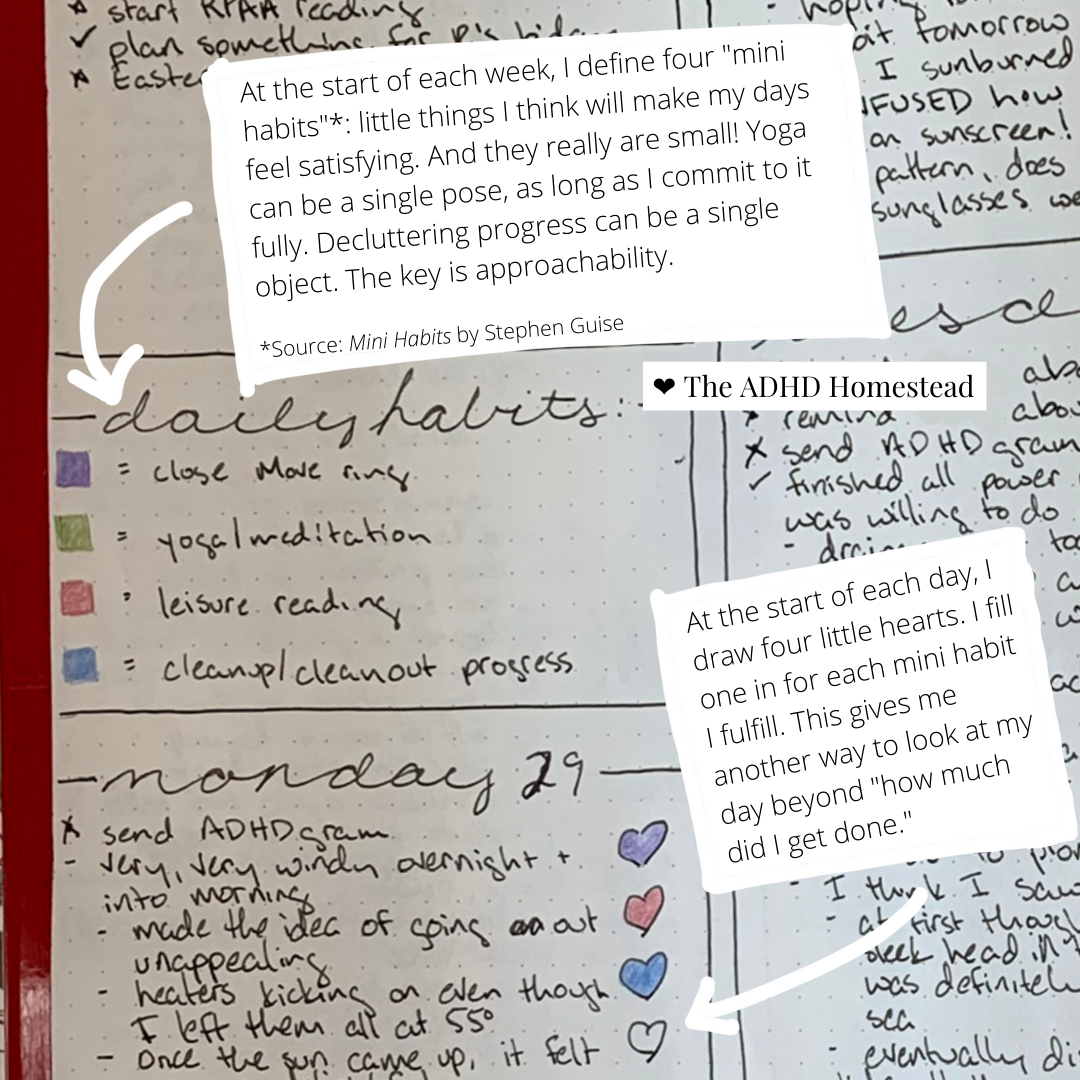 start RPAA reading
✓ plan something for P's bday
Easte
At the start of each week, I define four "mini
habits"*: little things I think will make my days
feel satisfying. And they really are small! Yoga
can be a single pose, as long as I commit to it
fully. Decluttering progress can be a single
object. The key is approachability.
*Source: Mini Habits by Stephen Guise
tomorrow
I sunburned
NFUSED how
on sunscreen!
pattern, does
sunglasses we
❤ The ADHD Homestead
daily habits:
= close Move ring
= yoga/meditation
= leisure reading
= cleanup/cleanout progress
abo
remind abou
x send ADHD gram
✓ finished all power
was willing to do
At the start of each day, I
draw four little hearts. I fill
one in for each mini habit
I fulfill. This gives me
another way to look at my
day beyond "how much
did I get done."
monday 29
x send ADHD gram
- very, very windy overnight +
into morning
- made the idea of going out
unappealing
- heaters kicking on even though
I left them all at 55°
- once the sun came up, it felt
- I think I saw
- at first though
head in
was definitel
sea
- eventually di